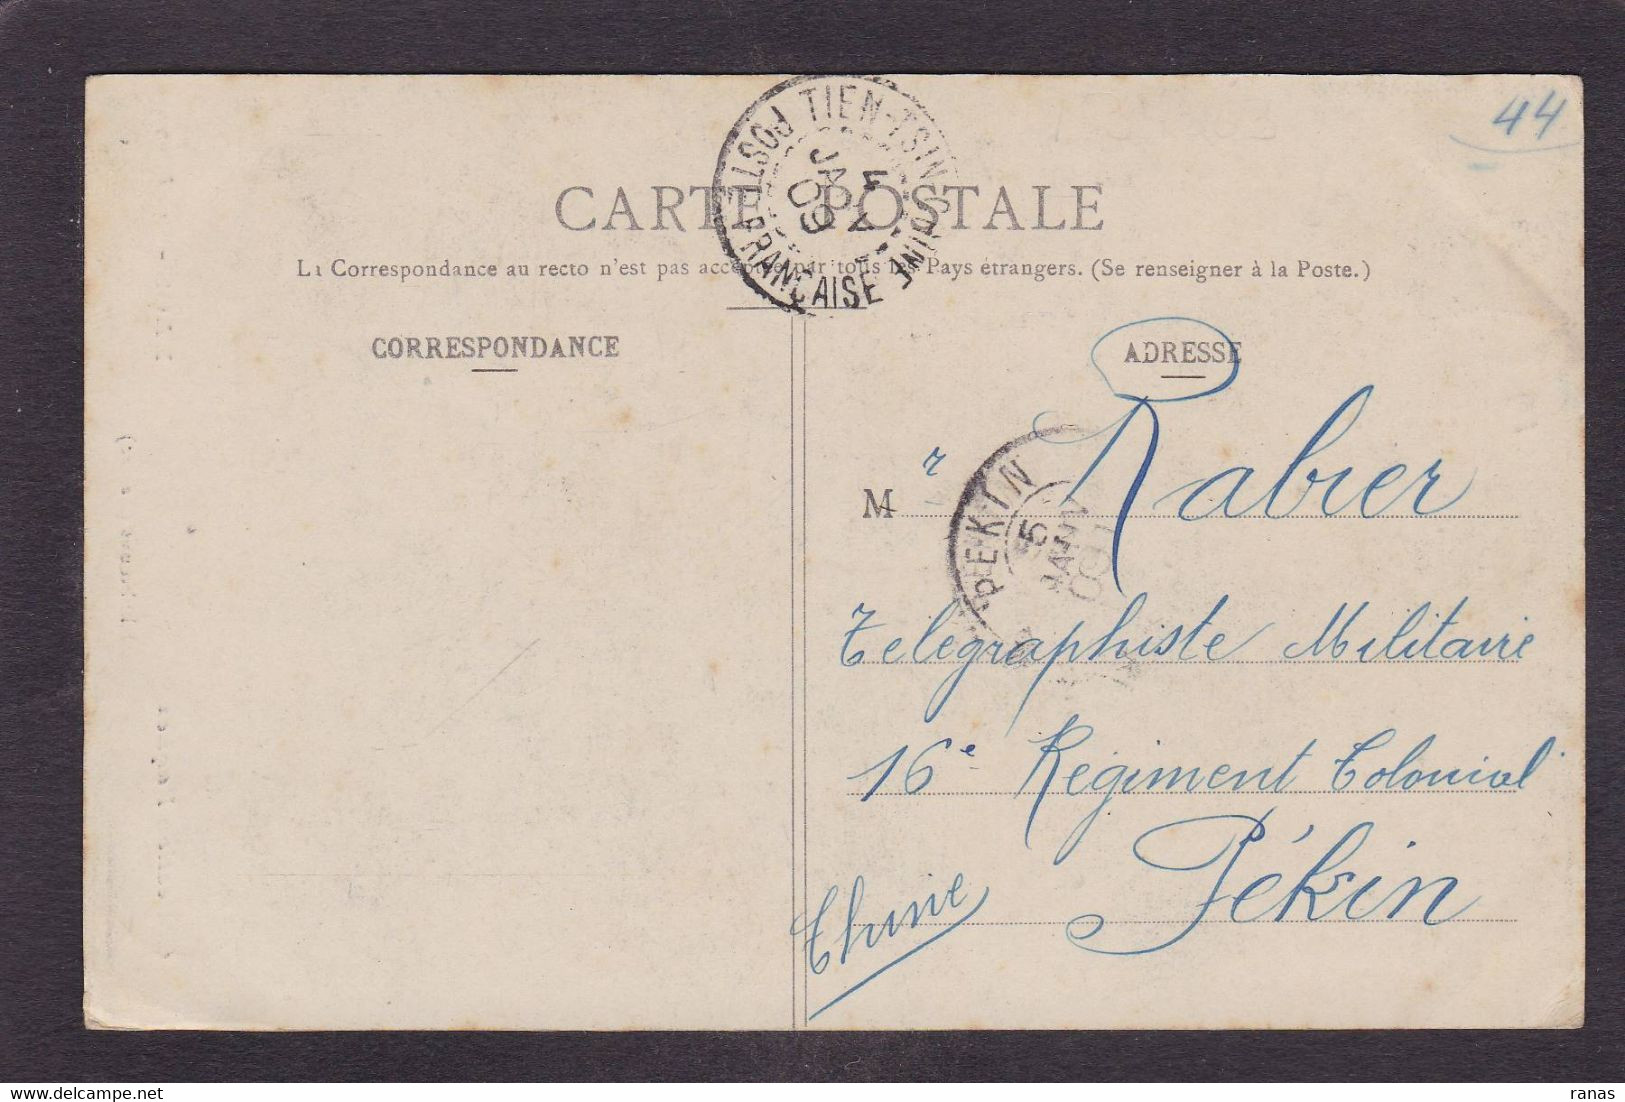 44
TIEN-TSIN CHINE
POSTE FRANÇAISE
4
JA
09
CARTE POSTALE
La Correspondance au recto n'est pas acceptée par tous les Pays étrangers. (Se renseigner à la Poste.)
CORRESPONDANCE
ADRESSE
Mr Rabier
PEKIN
5
JANV
09
Telegraphiste Militaire
16e Régiment Colonial
Pékin
Chine
ranas